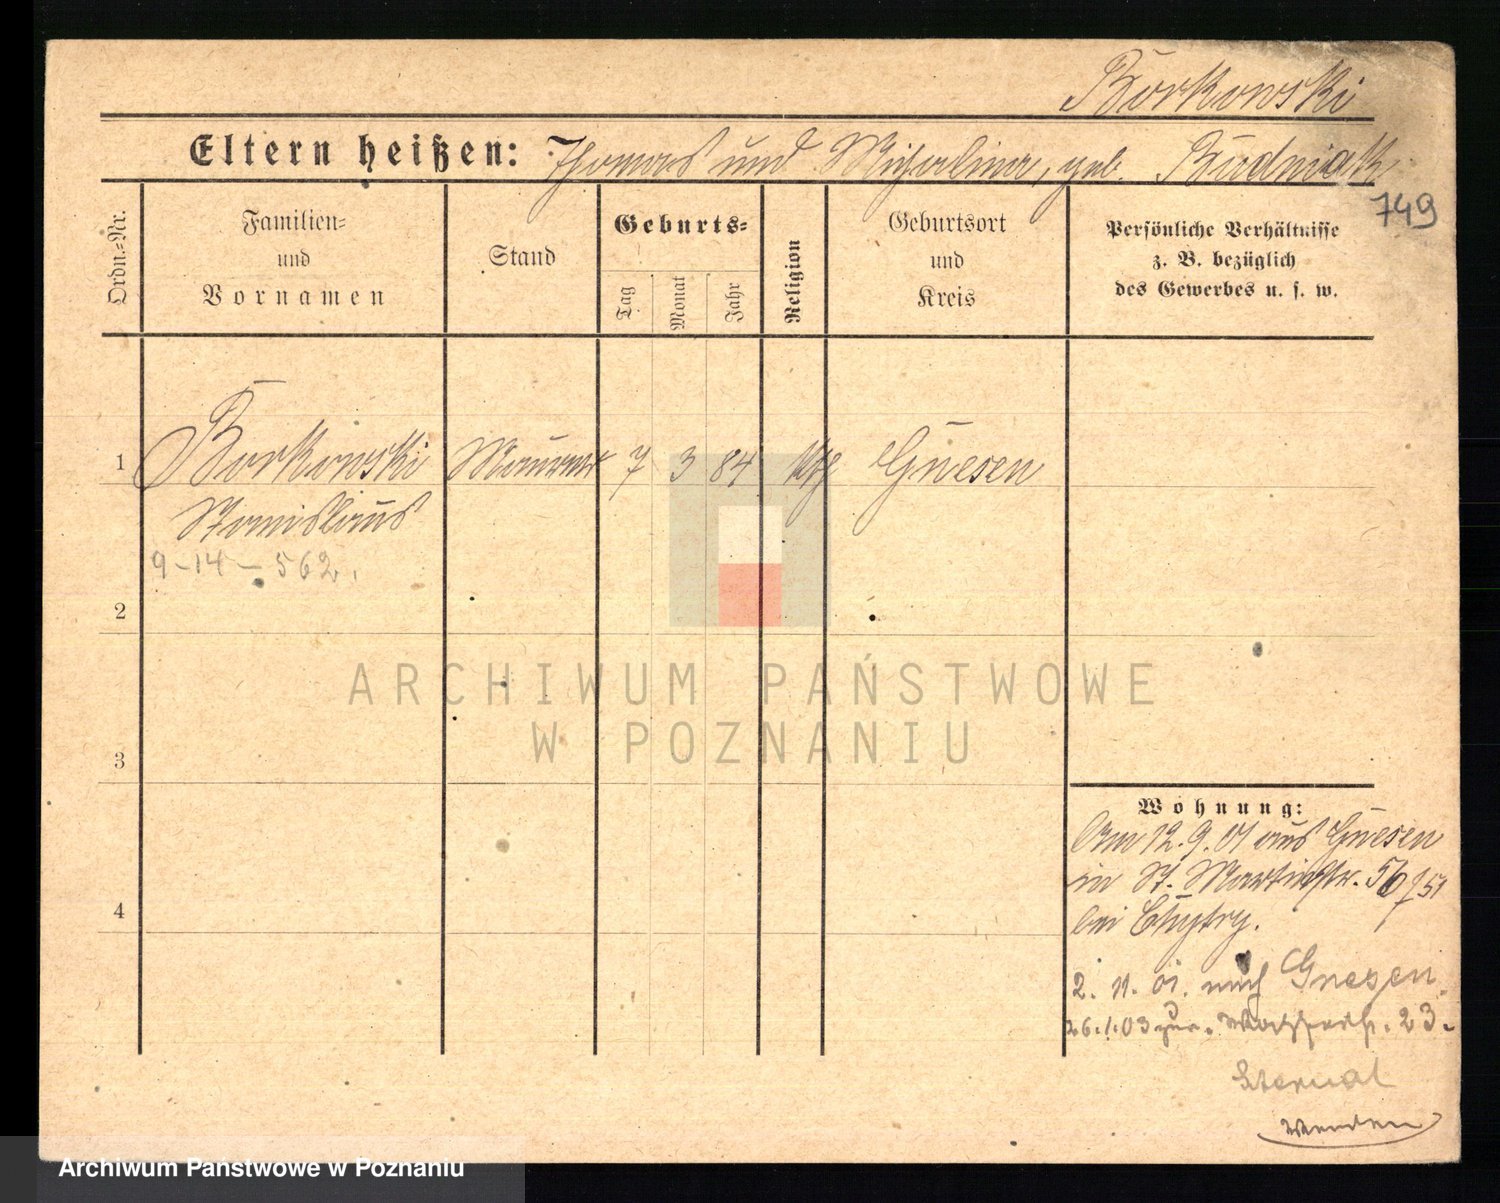 Borkowski
Eltern heißen: Thomas und Michalina, geb. Budniak
749
Ordn.=Nr.
Familien=
und
Vornamen
Stand
Geburts=
Tag
Monat
Jahr
Religion
Geburtsort
und
Kreis
Persönliche Verhältnisse
z. B. bezüglich
des Gewerbes u. s. w.
1 Borkowski Maurer 7 3 84 kth Gnesen
Stanislaus
9-14-562.
2
3
4
ARCHIWUM PAŃSTWOWE
W POZNANIU
Wohnung:
Am 12. 9. 01 aus Gnesen
in St. Martinstr. 56/51
bei
2. 11. 01. nach Gnesen.
26. 1. 03 zur. 23.
Wenden
Archiwum Państwowe w Poznaniu